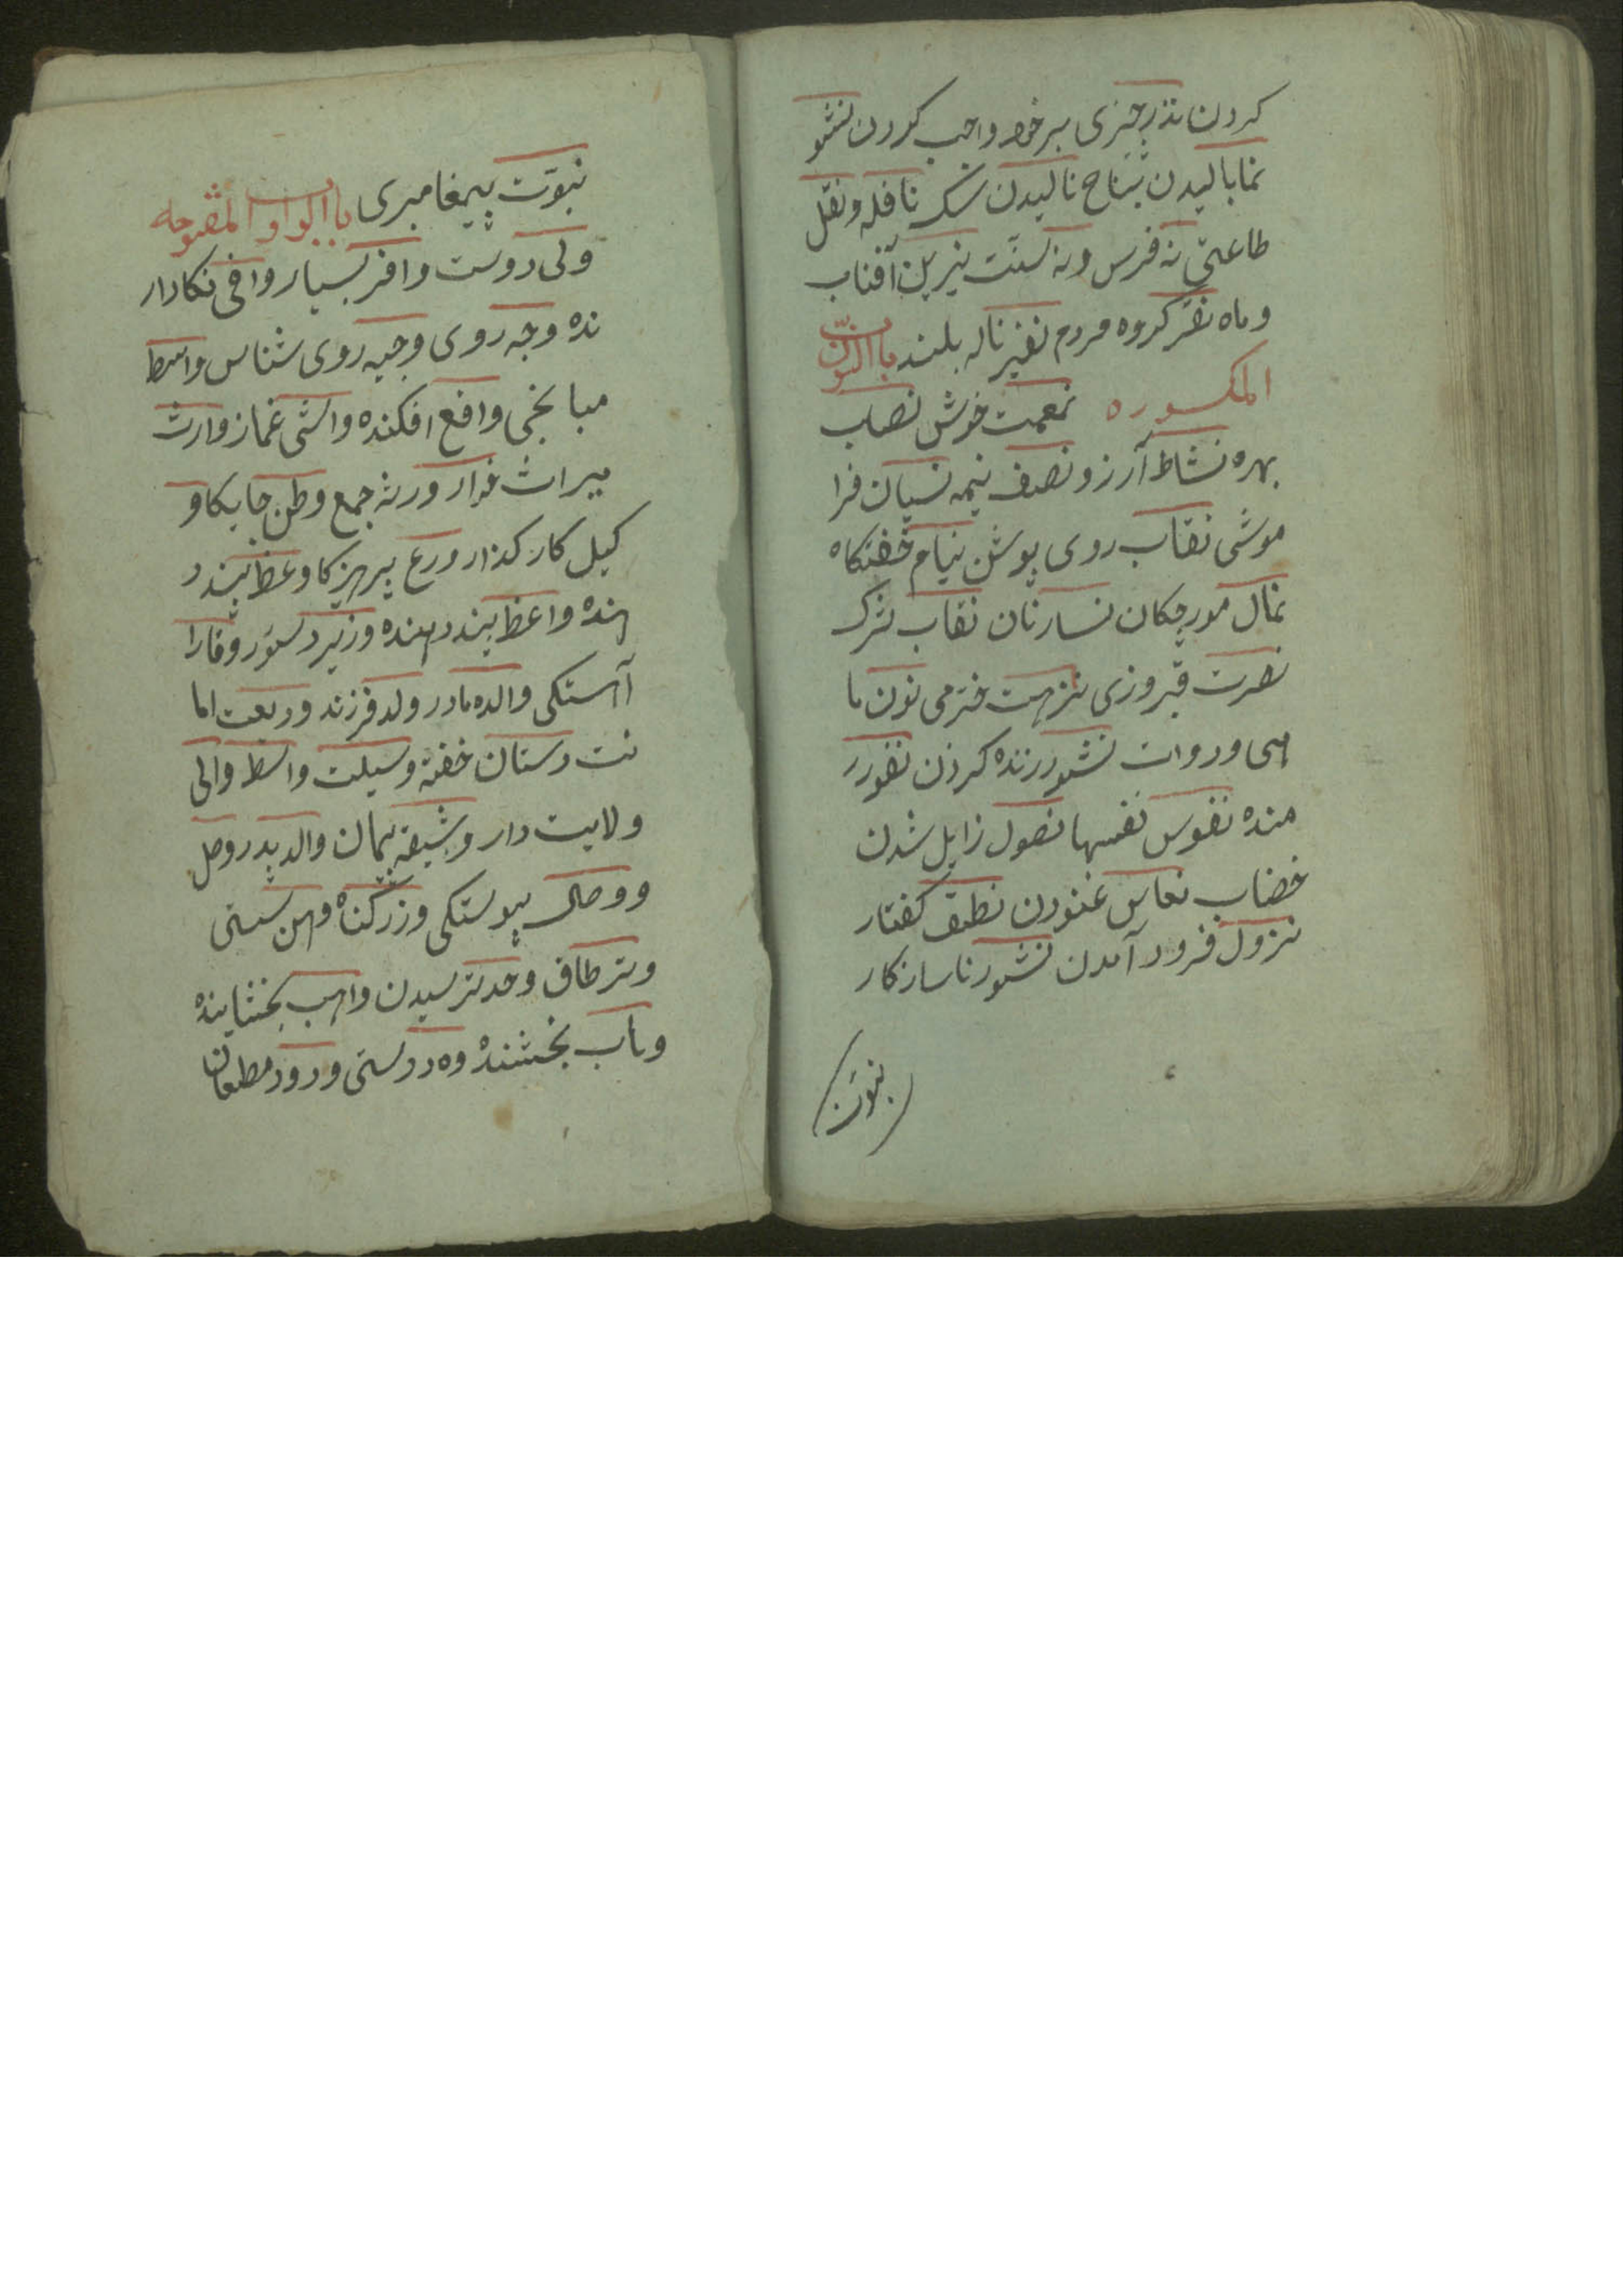 کردن نذر چیزی بر خود واجب کردن نشو
نما بالیدن نیاح نالیدن شک نافله و نفل
طاعتی نه فرس و نه سنّت نیرین آفتاب
و ماه نفر کروه مردم نفیر ناله بلند باب النون
المکسوره نعمت خوش نصاب
بهره نشاط آرزو نصف نیمه نسیان فرا
موشی نقاب روی پوش نیام خفتکاه
نمال مورچکان نسا زنان نقاب
نصرت فیروزی نزهت خرمی نون ما
هی و دوات نشور زنده کردن نفور ر
منده نفوس نفسها نصول زایل شدن
خضاب نعاس غنودن نطق کفتار
نزول فرود آمدن نشوز ناسازکار
نبوّت
نبوّت پیغامبری باب الواو المفتوحه
ولی دوست وافر بسیار وافی نکادار
نده وجه روی وجیه روی شناس واسط
میانجی واقع افکنده واشی غماز وارث
میراث خوار ورثه جمع وطن جایکاه و
کیل کار کذار ورع پرهیزکا وعظ پند د
هنده واعظ پند دهنده وزیر دستور وقار ا
آهستکی والده مادر ولد فرزند ودیعت اما
نت وسنان خفته وسیلت واسط والی
ولایت دار وثیقه پیمان والد پدر وصل
و وصال پیوستکی وزر کناه وهن سستی
وتر طاق وجد ترسیدن واهب بخشاینده
وهاب بخشنده ود دوستی ورود